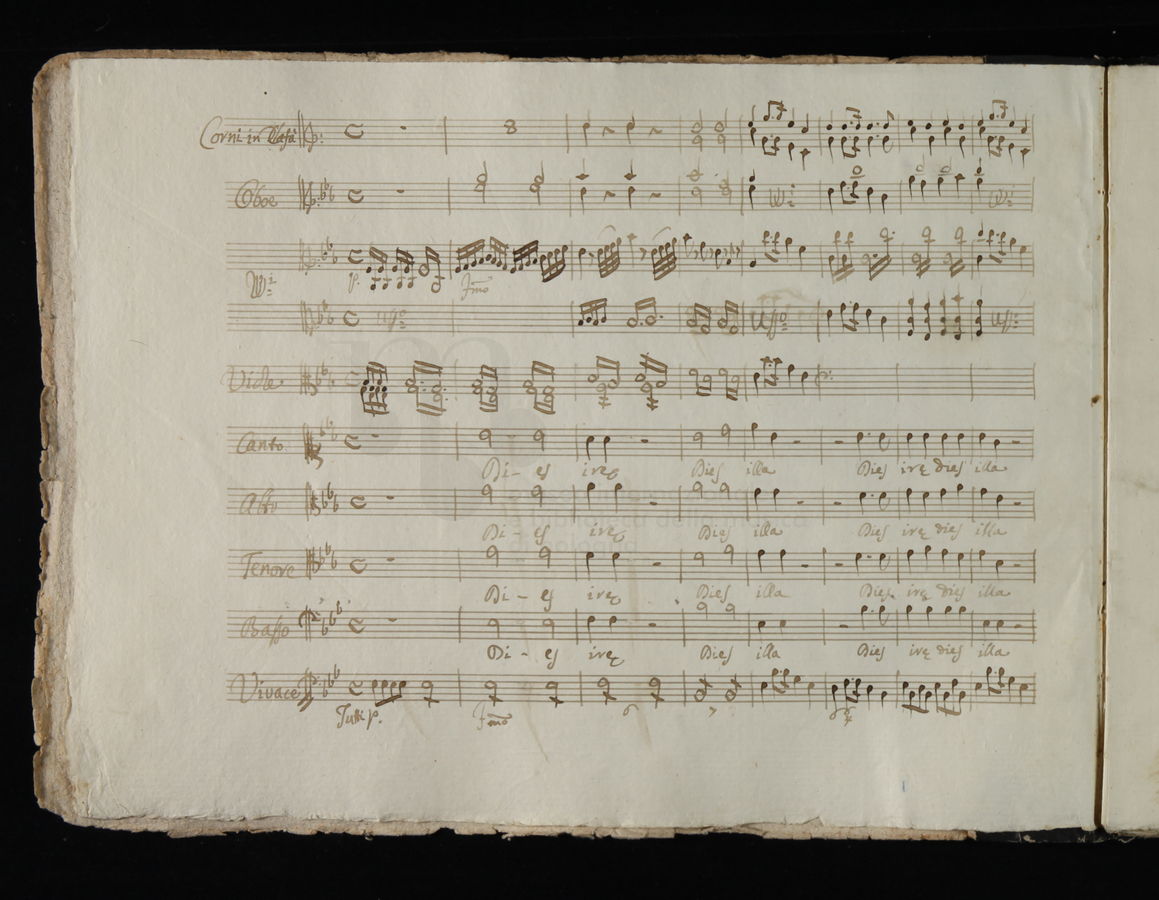 Corni in Elafà
Oboe
W.i
p.
Fmo
Uss.o
Uss.o
Viole
Canto
Di - es irę Dies illa Dies irę dies illa
Alto
Di - es irę Dies illa Dies irę dies illa
Tenore
Di - es irę Dies illa Dies irę dies illa
Basso
Di - es irę Dies illa Dies irę dies illa
Vivace
Tutti p.
Fmo